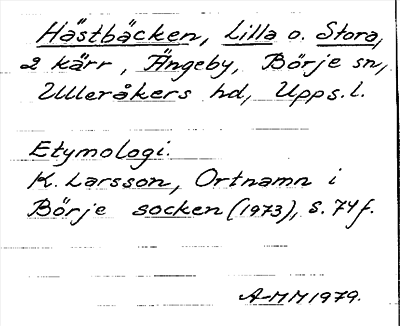 Hästbäcken, Lilla o. Stora,
2 kärr, Ängeby, Börje sn,
Ulleråkers hd, Upps. l.
Etymologi.
K. Larsson, Ortnamn i
Börje socken (1973), s. 74 f.
A-MM 1979.